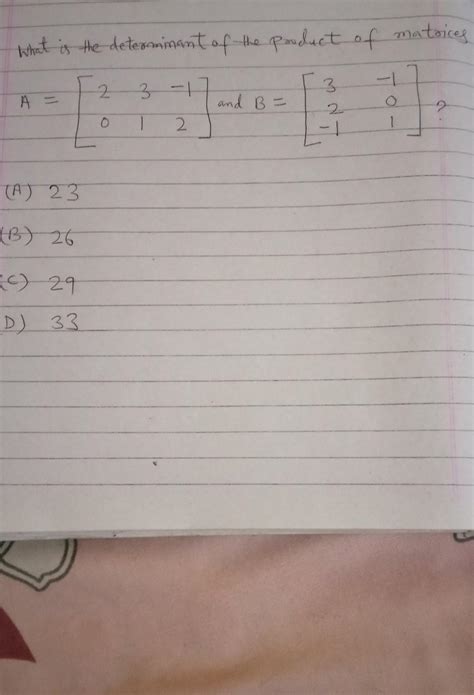 What is the determinant of the product of matrices
A = [ 2 3 -1 ] and B = [ 3 -1 ] ?
[ 0 1 2 ] [ 2 0 ]
[ -1 1 ]
(A) 23
(B) 26
(C) 29
D) 33